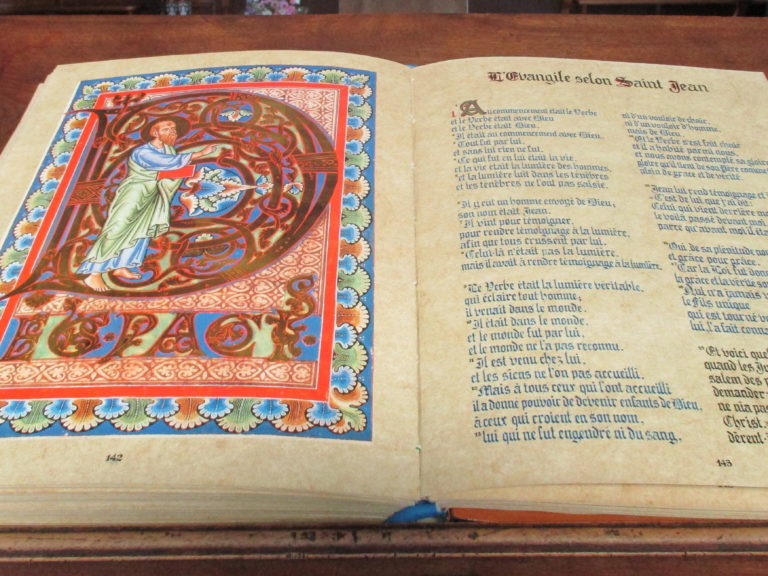 142
L'Evangile selon Saint Jean
1 Au commencement était le Verbe
et le Verbe était avec Dieu
et le Verbe était Dieu.
Il était au commencement avec Dieu.
Tout fut par lui,
et sans lui rien ne fut.
Ce qui fut en lui était la vie,
et la vie était la lumière des hommes,
et la lumière luit dans les ténèbres
et les ténèbres ne l'ont pas saisie.
Il y eut un homme envoyé de Dieu;
son nom était Jean.
Il vint pour témoigner,
pour rendre témoignage à la lumière,
afin que tous crussent par lui.
Celui-là n'était pas la lumière,
mais il avait à rendre témoignage à la lumière.
Le Verbe était la lumière véritable,
qui éclaire tout homme;
il venait dans le monde.
Il était dans le monde,
et le monde fut par lui,
et le monde ne l'a pas reconnu.
Il est venu chez lui,
et les siens ne l'on pas accueilli.
Mais à tous ceux qui l'ont accueilli
il a donné pouvoir de devenir enfants de Dieu,
à ceux qui croient en son nom,
lui qui ne fut engendré ni du sang,
ni d'un vouloir de chair,
ni d'un vouloir d'homme,
mais de Dieu.
Et le Verbe s'est fait chair
et il a habité parmi nous,
et nous avons contemplé sa gloire
gloire qu'il tient de son Père comme
plein de grâce et de vérité.
Jean lui rend témoignage et
C'est de lui que j'ai dit:
Celui qui vient derrière moi
le voilà passé devant moi,
parce qu'avant moi il
Oui, de sa plénitude nous
et grâce pour grâce.
Car la Loi fut
la grâce et la vérité
Nul n'a jamais v
le Fils unique
qui est tourné ve
lui, l'a fait conna
Et voici quel
quand les Ju
salem des p
demander
ne nia pas
Christ.
dèrent:
143